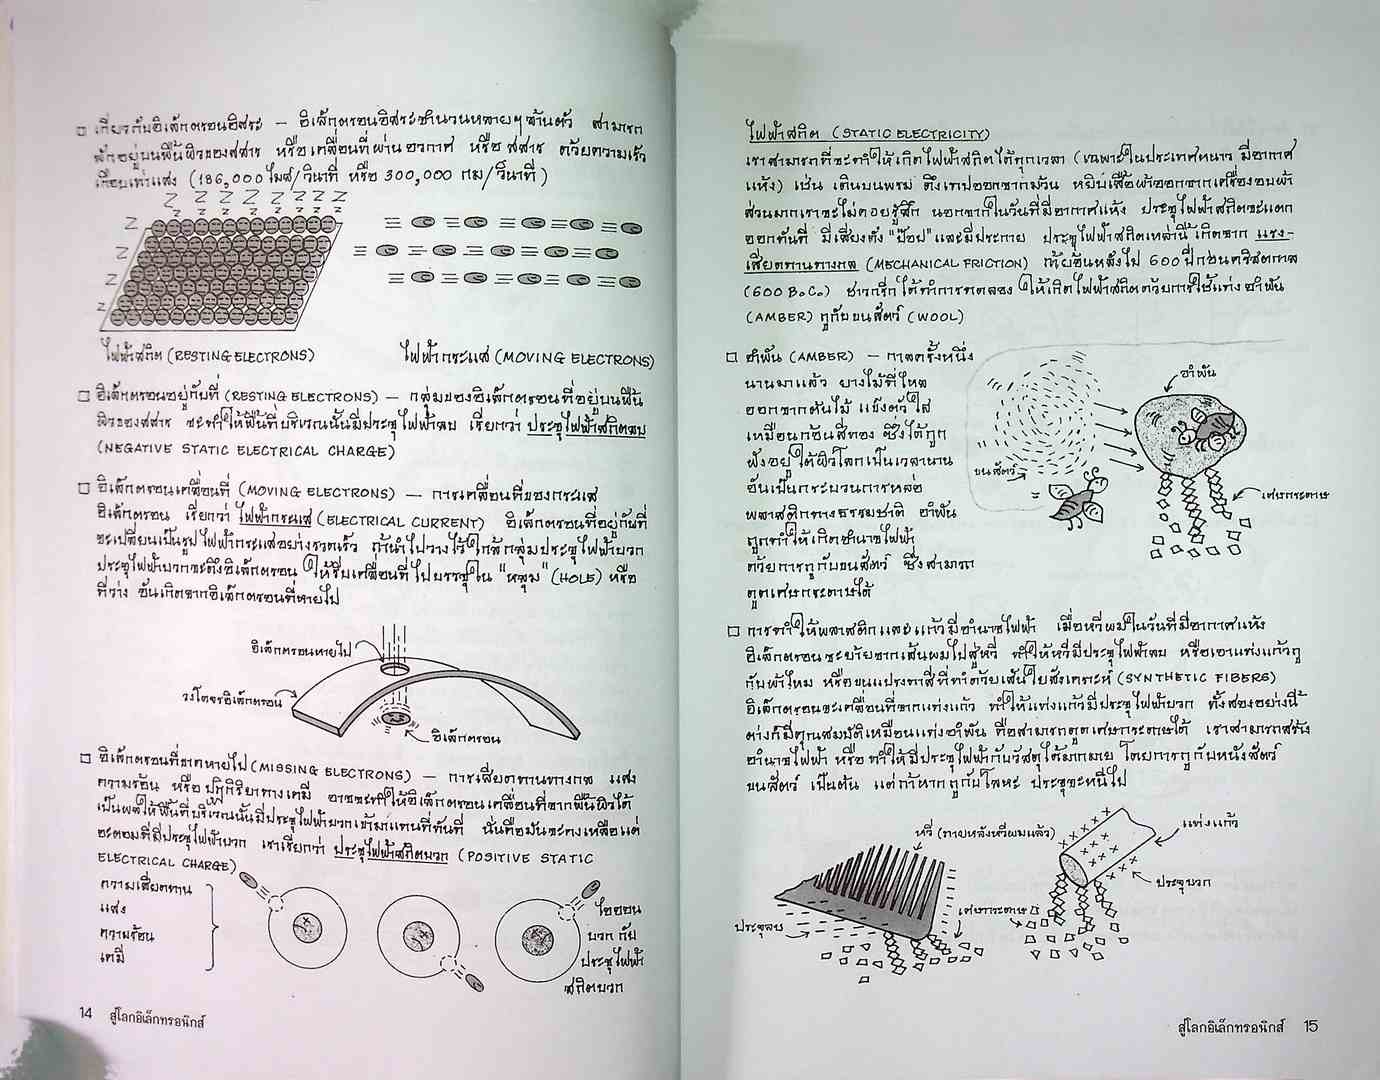 เกี่ยวกับอิเล็กตรอนอิสระ – อิเล็กตรอนอิสระจำนวนหลายๆล้านตัว สามารถ
พักอยู่บนพื้นผิวของสสาร หรือเคลื่อนที่ผ่านอวกาศ หรือสสาร ด้วยความเร็ว
เกือบเท่าแสง (186,000 ไมล์/วินาที หรือ 300,000 กม/วินาที)
ไฟฟ้าสถิต (RESTING ELECTRONS)
ไฟฟ้ากระแส (MOVING ELECTRONS)
อิเล็กตรอนอยู่กับที่ (RESTING ELECTRONS) – กลุ่มของอิเล็กตรอนที่อยู่บนพื้น
ผิวของสสาร จะทำให้พื้นที่บริเวณนั้นมีประจุไฟฟ้าลบ เรียกว่า ประจุไฟฟ้าสถิตลบ
(NEGATIVE STATIC ELECTRICAL CHARGE)
อิเล็กตรอนเคลื่อนที่ (MOVING ELECTRONS) – การเคลื่อนที่ของกระแส
อิเล็กตรอน เรียกว่า ไฟฟ้ากระแส (ELECTRICAL CURRENT) อิเล็กตรอนที่อยู่กับที่
จะเปลี่ยนเป็นรูปไฟฟ้ากระแสอย่างรวดเร็ว ถ้านำไปวางไว้ใกล้กลุ่มประจุไฟฟ้าบวก
ประจุไฟฟ้าบวกจะดึงอิเล็กตรอน ให้รีบเคลื่อนที่ไปบรรจุใน "หลุม" (HOLE) หรือ
ที่ว่าง อันเกิดจากอิเล็กตรอนที่หายไป
อิเล็กตรอนหายไป
วงโคจรอิเล็กตรอน
อิเล็กตรอน
อิเล็กตรอนที่ขาดหายไป (MISSING ELECTRONS) – การเสียดทานทางกล แสง
ความร้อน หรือปฏิกิริยาทางเคมี อาจจะทำให้อิเล็กตรอนเคลื่อนที่จากพื้นผิวได้
เป็นผลให้พื้นที่บริเวณนั้นมีประจุไฟฟ้าบวกเข้ามาแทนที่ทันที นั่นคือมันจะคงเหลือแต่
อะตอมที่มีประจุไฟฟ้าบวก เราเรียกว่า ประจุไฟฟ้าสถิตบวก (POSITIVE STATIC
ELECTRICAL CHARGE)
ความเสียดทาน
แสง
ความร้อน
เคมี
ไอออน
บวก กับ
ประจุไฟฟ้า
สถิตบวก
14 สู่โลกอิเล็กทรอนิกส์
ไฟฟ้าสถิต (STATIC ELECTRICITY)
เราสามารถที่จะทำให้เกิดไฟฟ้าสถิตได้ทุกเวลา (เฉพาะในประเทศหนาว มีอากาศ
แห้ง) เช่น เดินบนพรม ดึงเทปออกจากม้วน หยิบเสื้อผ้าออกจากเครื่องอบผ้า
ส่วนมากเราจะไม่ค่อยรู้สึก นอกจากในวันที่มีอากาศแห้ง ประจุไฟฟ้าสถิตจะแตก
ออกทันที มีเสียงดัง "ป๊อบ" และมีประกาย ประจุไฟฟ้าสถิตเหล่านี้เกิดจาก แรง-
เสียดทานทางกล (MECHANICAL FRICTION) ย้อนหลังไป 600 ปีก่อนคริสตกาล
(600 B.C.) ชาวกรีกได้ทำการทดลอง ให้เกิดไฟฟ้าสถิตด้วยการใช้แท่งอำพัน
(AMBER) ถูกับขนสัตว์ (WOOL)
อำพัน (AMBER) – กาลครั้งหนึ่ง
นานมาแล้ว ยางไม้ที่ไหล
ออกจากต้นไม้ แข็งตัว ใส
เหมือนก้อนสีทอง ซึ่งได้ถูก
ฝังอยู่ใต้ผิวโลกเป็นเวลานาน
อันเป็นกระบวนการหล่อ
พลาสติกทางธรรมชาติ อำพัน
ถูกทำให้เกิดอำนาจไฟฟ้า
ด้วยการถูกับขนสัตว์ ซึ่งสามารถ
ดูดเศษกระดาษได้
อำพัน
ขนสัตว์
เศษกระดาษ
การทำให้พลาสติกและแก้วมีอำนาจไฟฟ้า เมื่อหวีผมในวันที่มีอากาศแห้ง
อิเล็กตรอนจะย้ายจากเส้นผมไปสู่หวี ทำให้หวีมีประจุไฟฟ้าลบ หรือเอาแท่งแก้วถู
กับผ้าไหม หรือขนแปรงทาสีที่ทำด้วยเส้นใยสังเคราะห์ (SYNTHETIC FIBERS)
อิเล็กตรอนจะเคลื่อนที่จากแท่งแก้ว ทำให้แท่งแก้วมีประจุไฟฟ้าบวก ทั้งสองอย่างนี้
ต่างก็มีคุณสมบัติเหมือนแท่งอำพัน คือสามารถดูดเศษกระดาษได้ เราสามารถสร้าง
อำนาจไฟฟ้า หรือทำให้มีประจุไฟฟ้ากับวัสดุได้มากมาย โดยการถูกับหนังสัตว์
ขนสัตว์ เป็นต้น แต่ถ้าหากถูกับโลหะ ประจุจะหนีไป
หวี (ภายหลังหวีผมแล้ว)
แท่งแก้ว
ประจุบวก
เศษกระดาษ
ประจุลบ
สู่โลกอิเล็กทรอนิกส์ 15